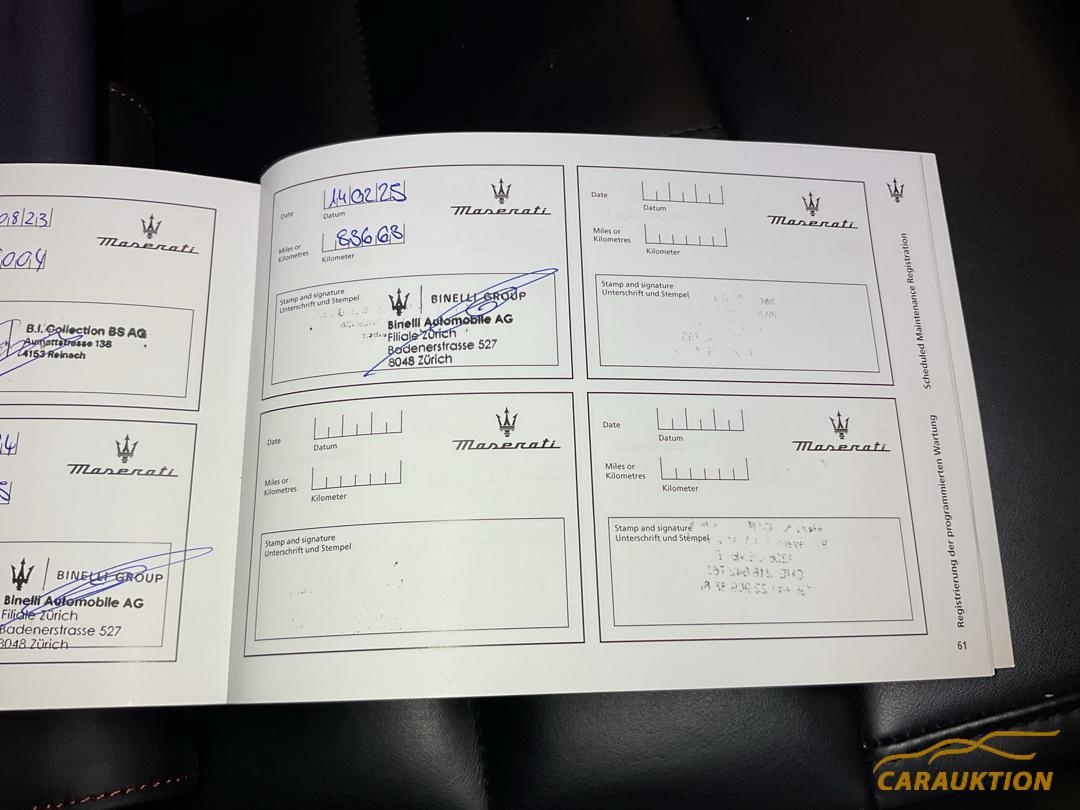 08|23
Maserati
004
B.I. Collection BS AG
Aumattstrasse 138
4153 Reinach
4
Maserati
BINELLI GROUP
Binelli Automobile AG
Filiale Zürich
Badenerstrasse 527
8048 Zürich
Date
14|02|25
Datum
Maserati
Miles or
Kilometres
83668
Kilometer
Stamp and signature
Unterschrift und Stempel
BINELLI GROUP
Binelli Automobile AG
Filiale Zürich
Badenerstrasse 527
8048 Zürich
Date
Datum
Maserati
Miles or
Kilometres
Kilometer
Stamp and signature
Unterschrift und Stempel
Date
Datum
Maserati
Miles or
Kilometres
Kilometer
Stamp and signature
Unterschrift und Stempel
Date
Datum
Maserati
Miles or
Kilometres
Kilometer
Stamp and signature
Unterschrift und Stempel
Scheduled Maintenance Registration
Registrierung der programmierten Wartung
61
CARAUKTION